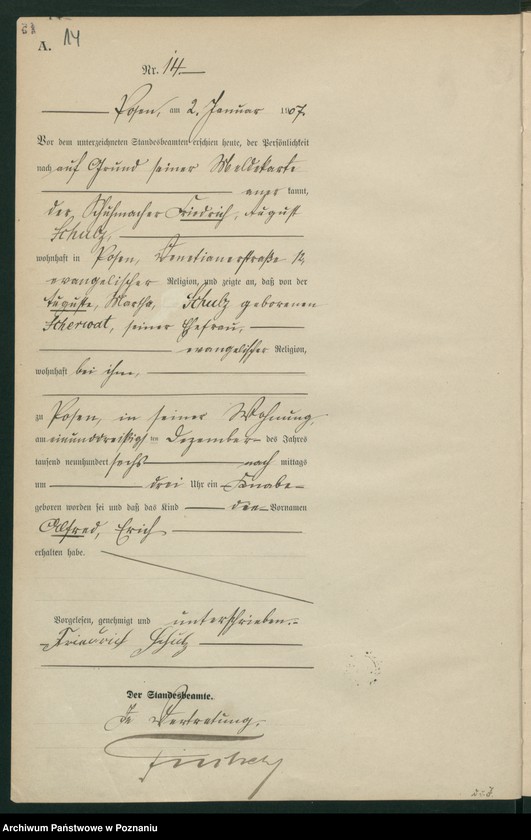 A. 14
Nr. 14
Posen, am 2. Januar 1907.
Vor dem unterzeichneten Standesbeamten erschien heute, der Persönlichkeit
nach auf Grund seiner Meldekarte
anerkannt,
der Schuhmacher Friedrich, August
Schulz,
wohnhaft in Posen, Venetianerstraße 12,
evangelischer Religion, und zeigte an, daß von der
Auguste, Martha, Schulz geborenen
Scherwat, seiner Ehefrau,
evangelischer Religion,
wohnhaft bei ihm,
zu Posen, in seiner Wohnung,
am einunddreißigsten Dezember des Jahres
tausend neunhundert sechs nach mittags
um drei Uhr ein Knabe
geboren worden sei und daß das Kind den Vornamen
Alfred, Erich
erhalten habe.
Vorgelesen, genehmigt und unterschrieben.
Friedrich Schulz
Der Standesbeamte.
In Vertretung.
Archiwum Państwowe w Poznaniu